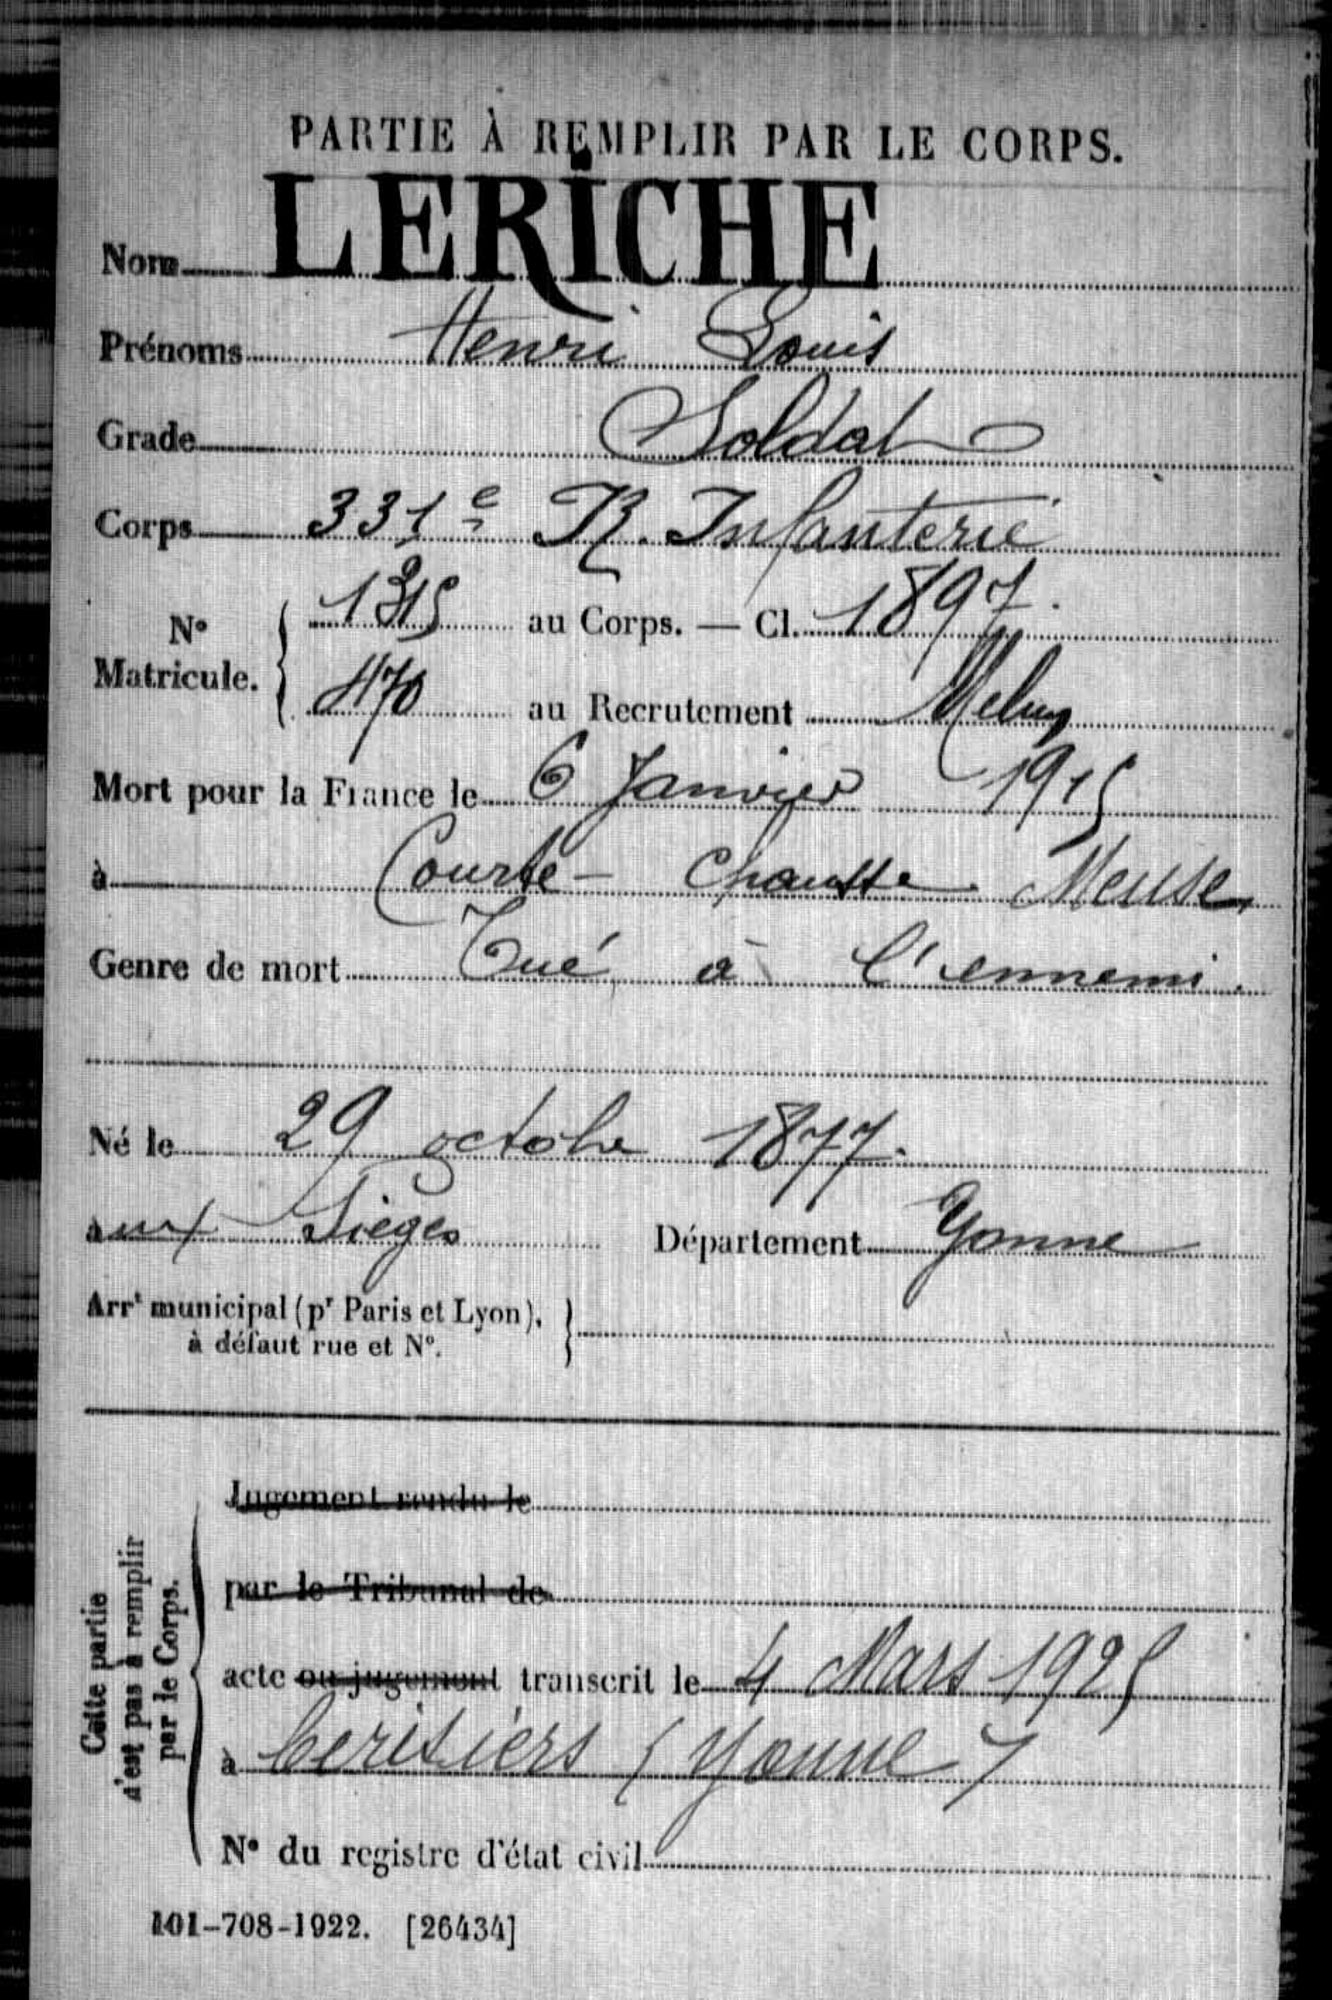 PARTIE À REMPLIR PAR LE CORPS.
Nom LERICHE
Prénoms Henri Louis
Grade Soldat
Corps 331e R. Infanterie
N° Matricule. { 1315 au Corps. — Cl. 1897.
470 au Recrutement Melun
Mort pour la France le 6 Janvier 1915
à Courte-Chausse Meuse
Genre de mort Tué à l'ennemi.
Né le 29 octobre 1877.
aux Sièges Département Yonne
Arrt municipal (pr Paris et Lyon), }
à défaut rue et N°.
Jugement rendu le
par le Tribunal de
acte ou jugement transcrit le 4 Mars 1925
à Cerisiers (Yonne)
N° du registre d'état civil
Cette partie
n'est pas à remplir
par le Corps.
101-708-1922. [26434]